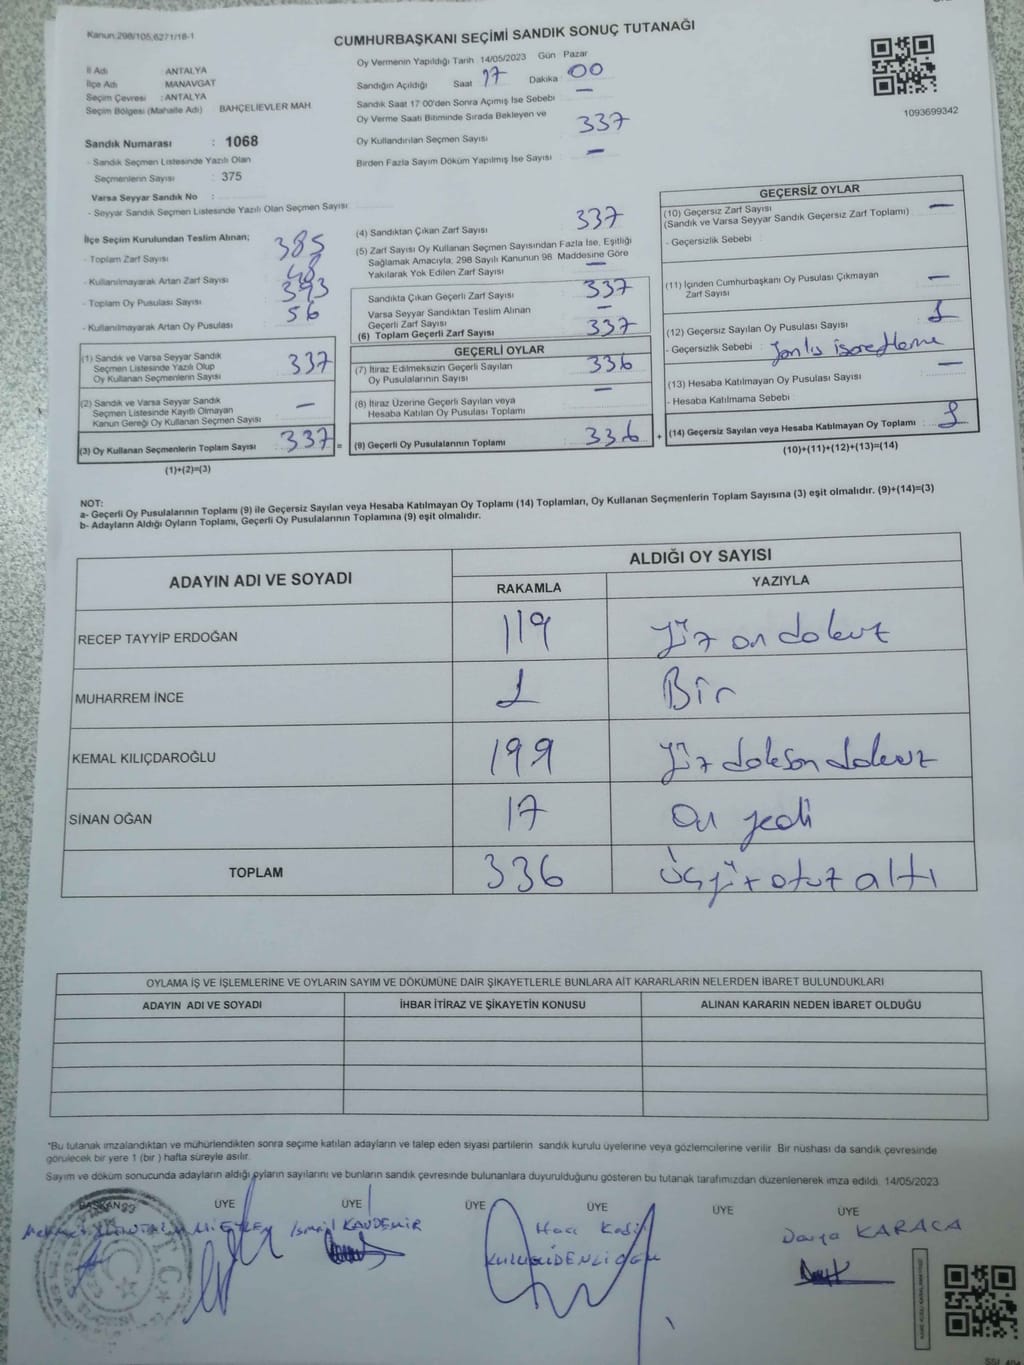 Kanun:298/105,6271/18-1
CUMHURBAŞKANI SEÇİMİ SANDIK SONUÇ TUTANAĞI
İl Adı ANTALYA
İlçe Adı MANAVGAT
Seçim Çevresi : ANTALYA
Seçim Bölgesi (Mahalle Adı) BAHÇELİEVLER MAH
Sandık Numarası : 1068
- Sandık Seçmen Listesinde Yazılı Olan
Seçmenlerin Sayısı : 375
Varsa Seyyar Sandık No :
- Seyyar Sandık Seçmen Listesinde Yazılı Olan Seçmen Sayısı
Oy Vermenin Yapıldığı Tarih 14/05/2023 Gün Pazar
Sandığın Açıldığı Saat 17 Dakika 00
Sandık Saat 17 00'den Sonra Açımış İse Sebebi —
Oy Verme Saati Bitiminde Sırada Bekleyen ve
Oy Kullandırılan Seçmen Sayısı 337
Birden Fazla Sayım Döküm Yapılmış İse Sayısı —
1093699342
İlçe Seçim Kurulundan Teslim Alınan;
- Toplam Zarf Sayısı 385
- Kullanılmayarak Artan Zarf Sayısı 48
- Toplam Oy Pusulası Sayısı 393
- Kullanılmayarak Artan Oy Pusulası 56
(1) Sandık ve Varsa Seyyar Sandık
Seçmen Listesinde Yazılı Olup
Oy Kullanan Seçmenlerin Sayısı 337
(2) Sandık ve Varsa Seyyar Sandık
Seçmen Listesinde Kayıtlı Olmayan
Kanun Gereği Oy Kullanan Seçmen Sayısı —
(3) Oy Kullanan Seçmenlerin Toplam Sayısı : 337 =
(1)+(2)=(3)
(4) Sandıktan Çıkan Zarf Sayısı 337
(5) Zarf Sayısı Oy Kullanan Seçmen Sayısından Fazla İse, Eşitliği
Sağlamak Amacıyla, 298 Sayılı Kanunun 98. Maddesine Göre
Yakılarak Yok Edilen Zarf Sayısı —
Sandıkta Çıkan Geçerli Zarf Sayısı 337
Varsa Seyyar Sandıktan Teslim Alınan
Geçerli Zarf Sayısı —
(6) Toplam Geçerli Zarf Sayısı 337
GEÇERLİ OYLAR
(7) İtiraz Edilmeksizin Geçerli Sayılan
Oy Pusulalarının Sayısı 336
(8) İtiraz Üzerine Geçerli Sayılan veya
Hesaba Katılan Oy Pusulası Toplamı —
(9) Geçerli Oy Pusulalarının Toplamı 336 +
GEÇERSİZ OYLAR
(10) Geçersiz Zarf Sayısı —
(Sandık ve Varsa Seyyar Sandık Geçersiz Zarf Toplamı)
- Geçersizlik Sebebi :
(11) İçinden Cumhurbaşkanı Oy Pusulası Çıkmayan
Zarf Sayısı —
(12) Geçersiz Sayılan Oy Pusulası Sayısı 1
- Geçersizlik Sebebi : Yanlış işaretleme
(13) Hesaba Katılmayan Oy Pusulası Sayısı —
- Hesaba Katılmama Sebebi :
(14) Geçersiz Sayılan veya Hesaba Katılmayan Oy Toplamı : 1
(10)+(11)+(12)+(13)=(14)
NOT:
a- Geçerli Oy Pusulalarının Toplamı (9) ile Geçersiz Sayılan veya Hesaba Katılmayan Oy Toplamı (14) Toplamları, Oy Kullanan Seçmenlerin Toplam Sayısına (3) eşit olmalıdır. (9)+(14)=(3)
b- Adayların Aldığı Oyların Toplamı, Geçerli Oy Pusulalarının Toplamına (9) eşit olmalıdır.
ADAYIN ADI VE SOYADI ALDIĞI OY SAYISI
RAKAMLA YAZIYLA
RECEP TAYYİP ERDOĞAN 119 Yüz on dokuz
MUHARREM İNCE 1 Bir
KEMAL KILIÇDAROĞLU 199 Yüz dokson dokuz
SİNAN OĞAN 17 On yedi
TOPLAM 336 üçyüz otuz altı
OYLAMA İŞ VE İŞLEMLERİNE VE OYLARIN SAYIM VE DÖKÜMÜNE DAİR ŞİKAYETLERLE BUNLARA AİT KARARLARIN NELERDEN İBARET BULUNDUKLARI
ADAYIN ADI VE SOYADI İHBAR İTİRAZ VE ŞİKAYETİN KONUSU ALINAN KARARIN NEDEN İBARET OLDUĞU
*Bu tutanak imzalandıktan ve mühürlendikten sonra seçime katılan adayların ve talep eden siyasi partilerin sandık kurulu üyelerine veya gözlemcilerine verilir. Bir nüshası da sandık çevresinde
görülecek bir yere 1 (bir ) hafta süreyle asılır.
Sayım ve döküm sonucunda adayların aldığı oyların sayılarını ve bunların sandık çevresinde bulunanlara duyurulduğunu gösteren bu tutanak tarafımızdan düzenlenerek imza edildi. 14/05/2023
BAŞKAN ÜYE ÜYE ÜYE ÜYE ÜYE ÜYE
İsmail KANDEMİR Hacı Kadir Derya KARACA
T.C.